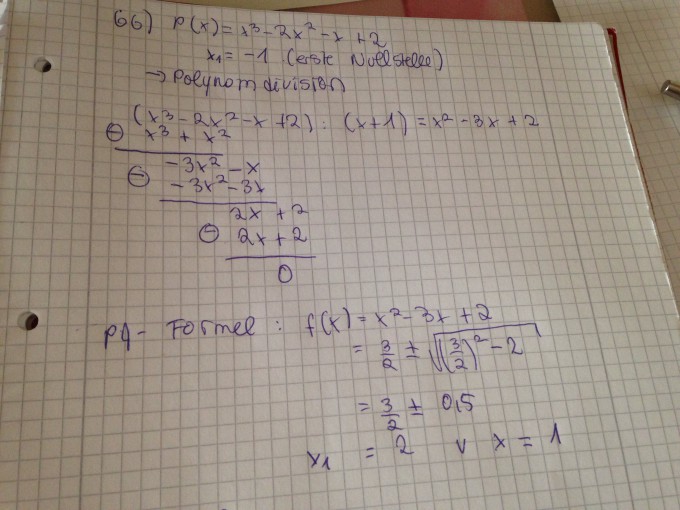 66) P(x) = x³ - 2x² - x + 2
x₁ = -1 (erste Nullstelle)
→ Polynomdivision
(x³ - 2x² - x + 2) : (x+1) = x² - 3x + 2
⊖ x³ + x²
-3x² - x
⊖ -3x² - 3x
2x + 2
⊖ 2x + 2
0
pq-Formel : f(x) = x² - 3x + 2
= 3/2 ± √((3/2)² - 2)
= 3/2 ± 0,5
x₁ = 2 v x = 1